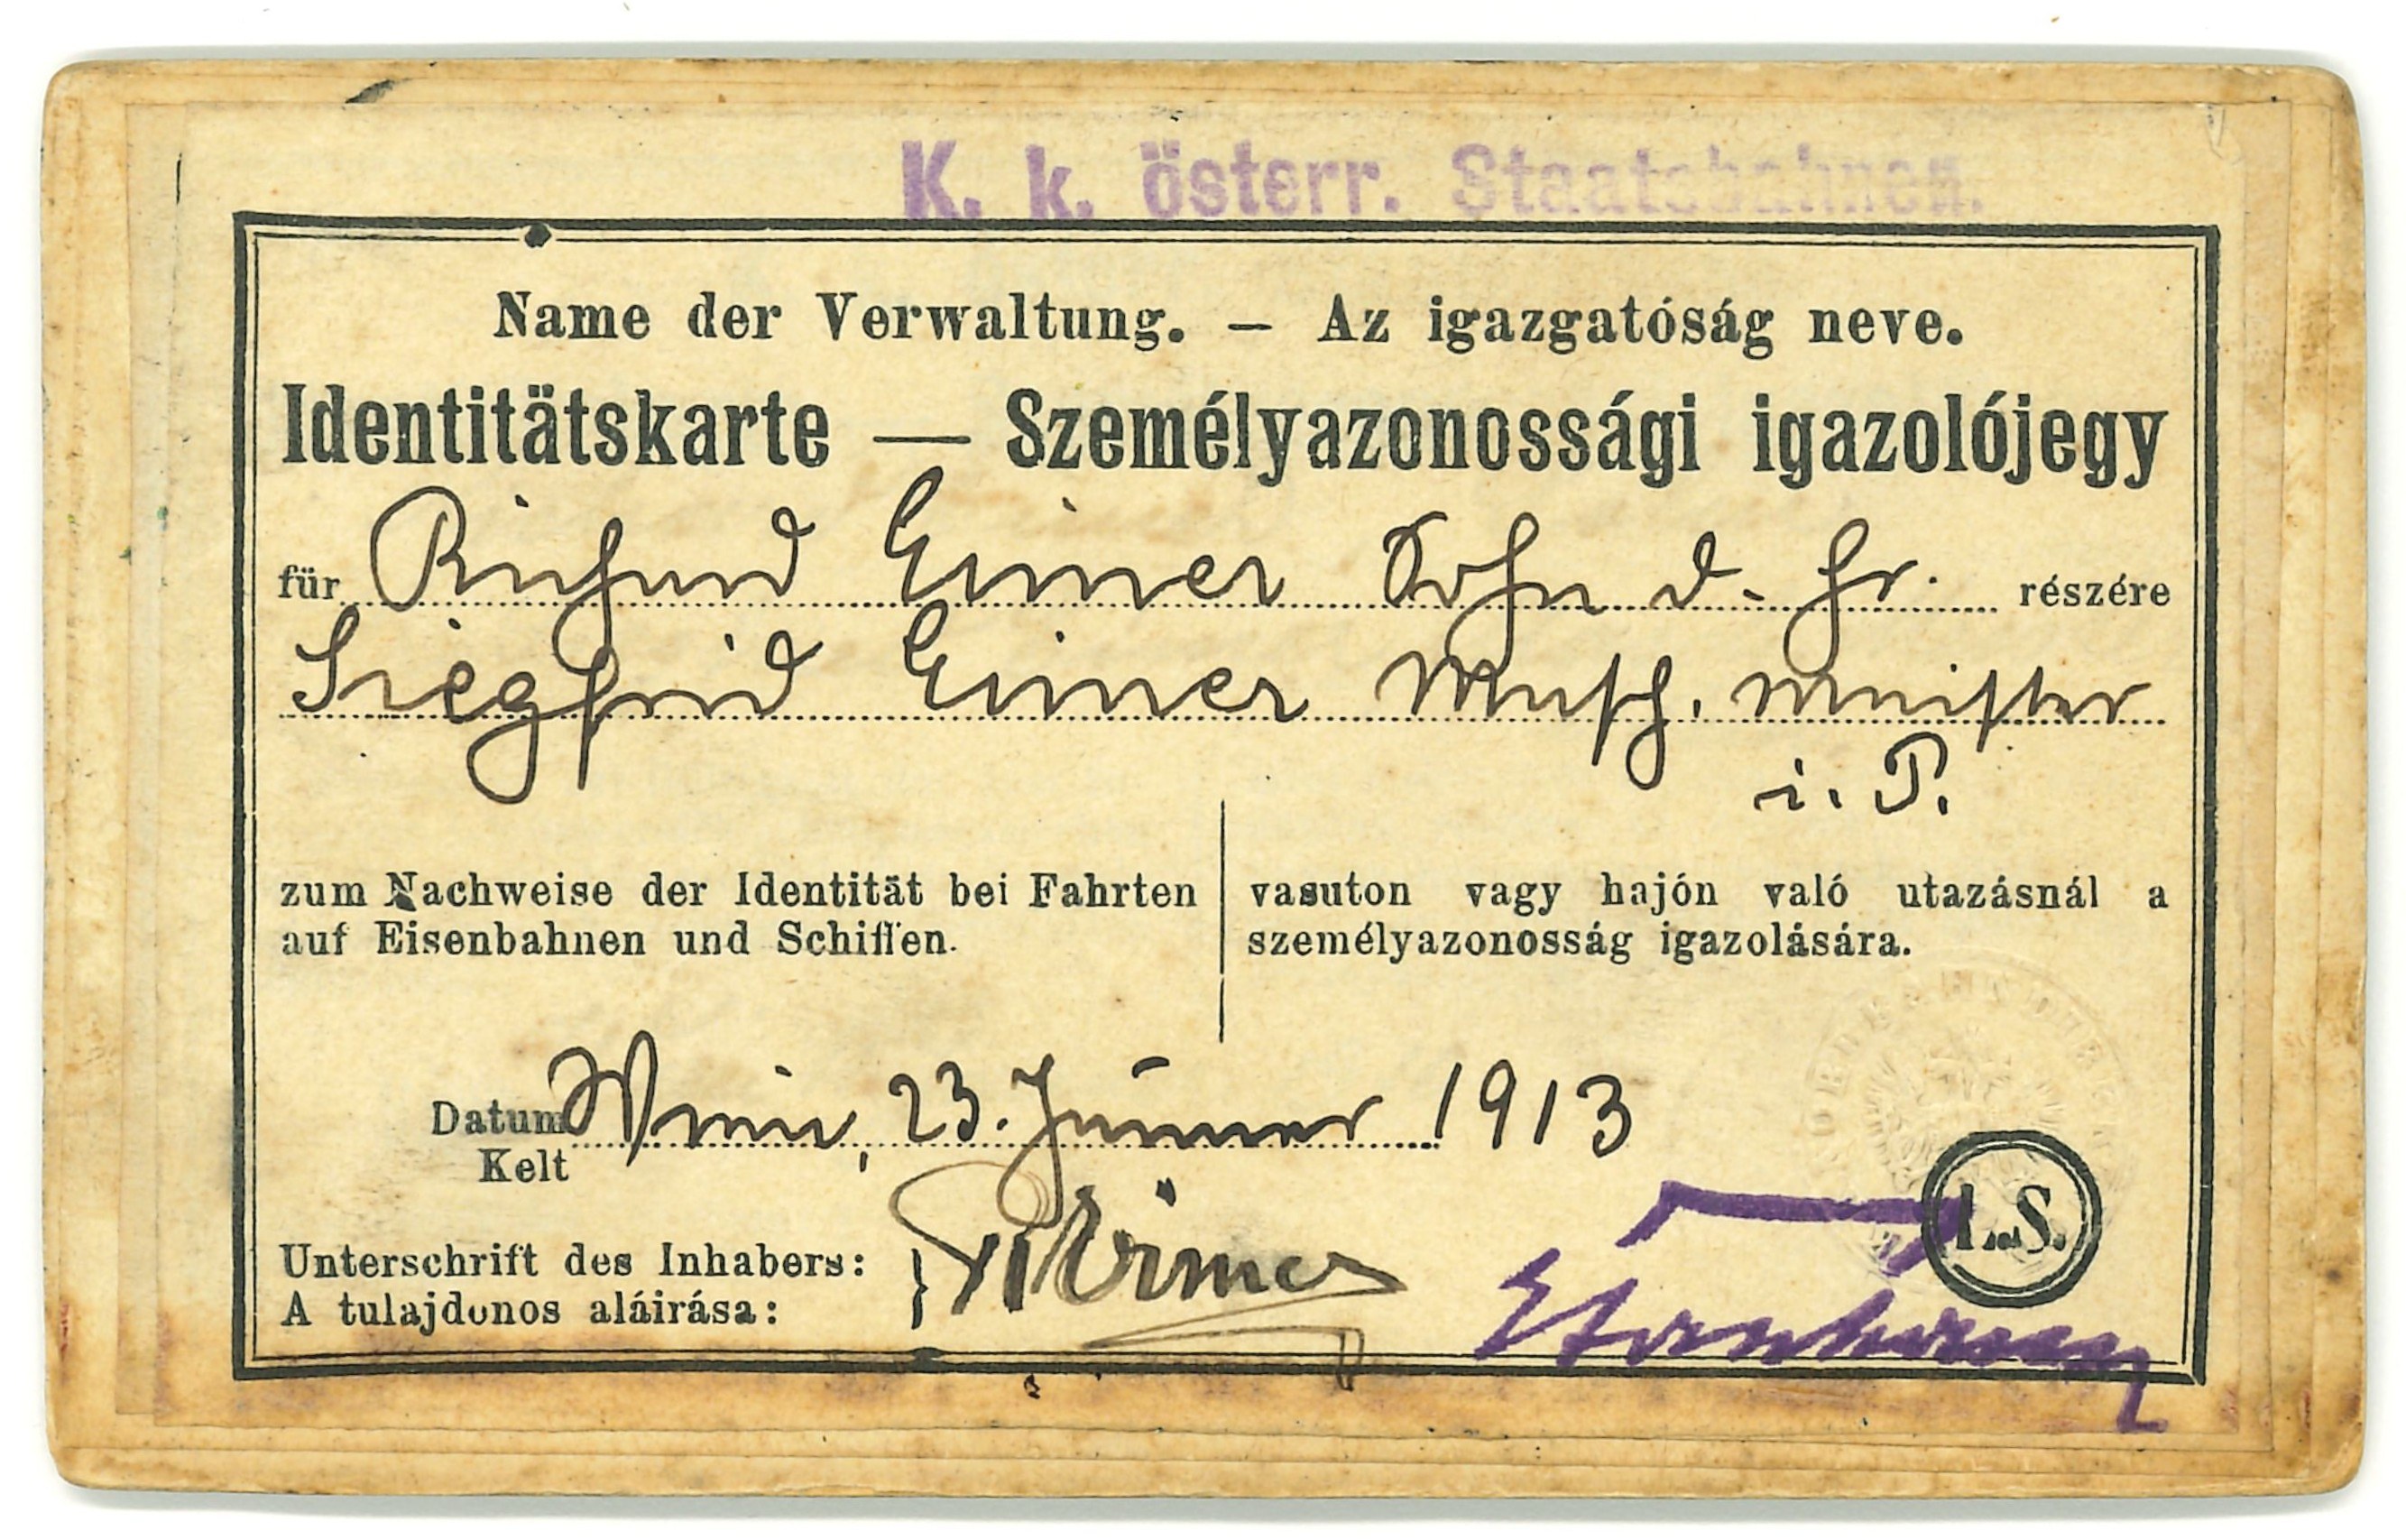 K. k. österr. Staatsbahnen.
Name der Verwaltung. — Az igazgatóság neve.
Identitätskarte — Személyazonossági igazolójegy
für Richard Eimer Sohn d. Hr. részére
Siegfrid Eimer Masch. meister
i. P.
zum Nachweise der Identität bei Fahrten
auf Eisenbahnen und Schiffen.
vasuton vagy hajón való utazásnál a
személyazonosság igazolására.
Datum Wien, 23. Jänner 1913
Kelt
L.S.
Unterschrift des Inhabers:
A tulajdonos aláirása:
Eimer